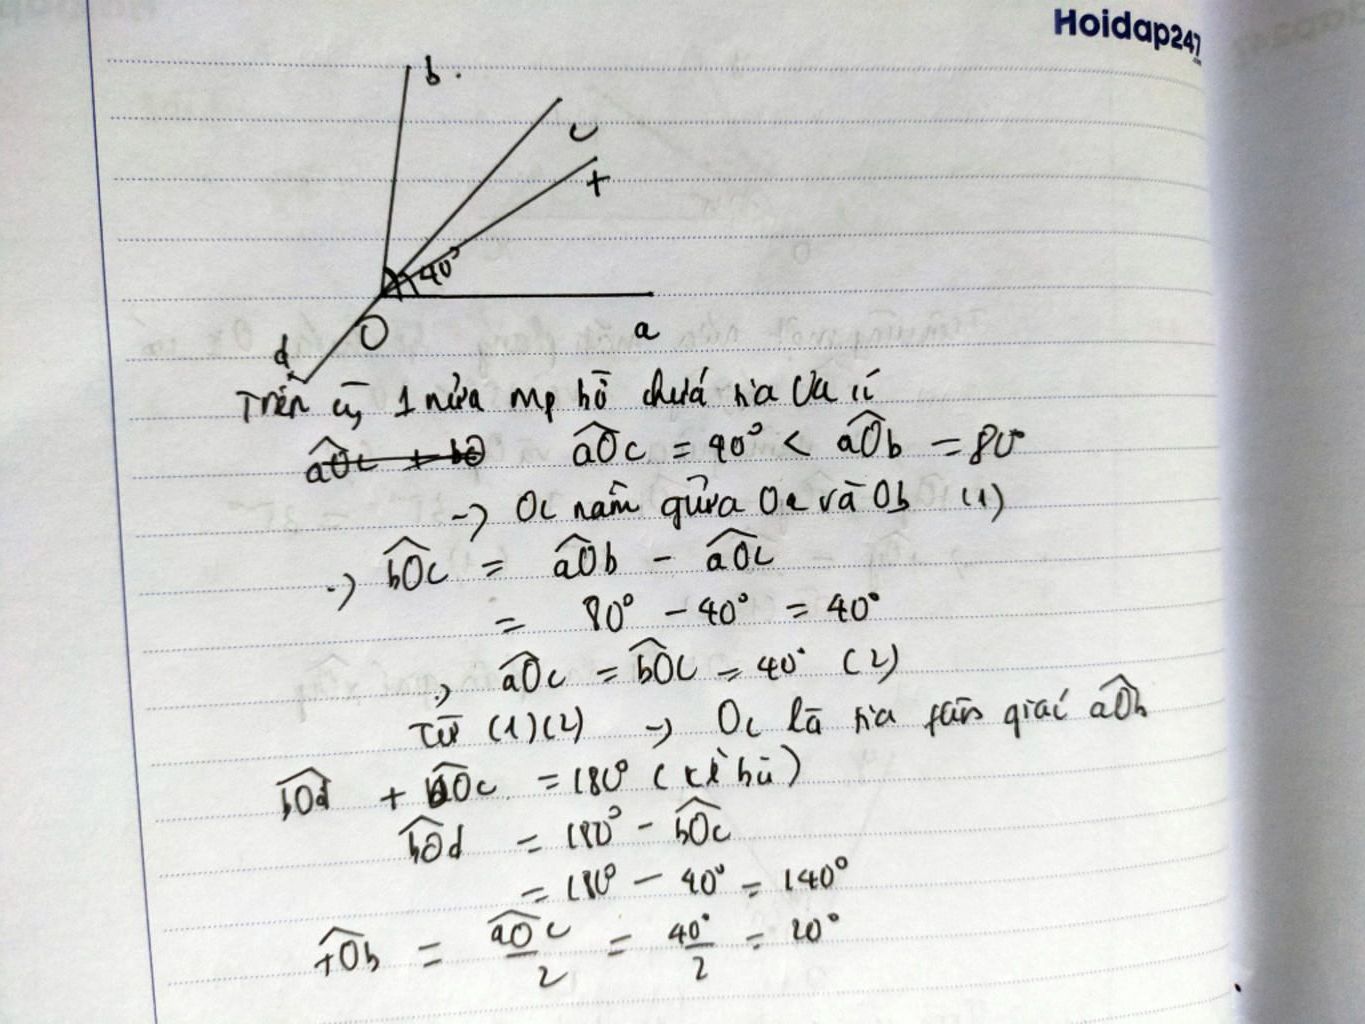 Hoidap247
.com
b.
c
t
40°
O
a
d
Trên cù 1 nửa mp bờ chứá tia Oa cí
aOc + bO aOc = 40° < aOb = 80°
-> Oc nằm giữa Oa và Ob (1)
-> bOc = aOb - aOc
= 80° - 40° = 40°
-> aOc = bOc = 40° (2)
Từ (1)(2) -> Oc là tia fân giác aOb
bOd + bOc = 180° (kề bù)
bOd = 180° - bOc
= 180° - 40° = 140°
tOb = aOc/2 = 40°/2 = 20°